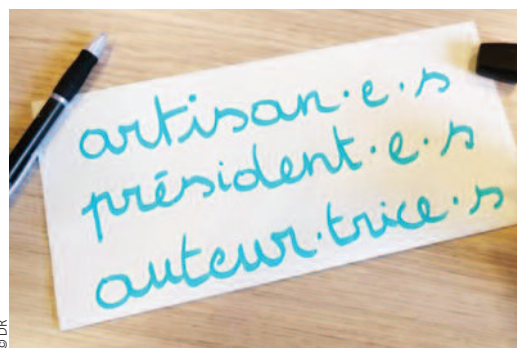 artisan·e·s
président·e·s
auteur·trice·s
© DR